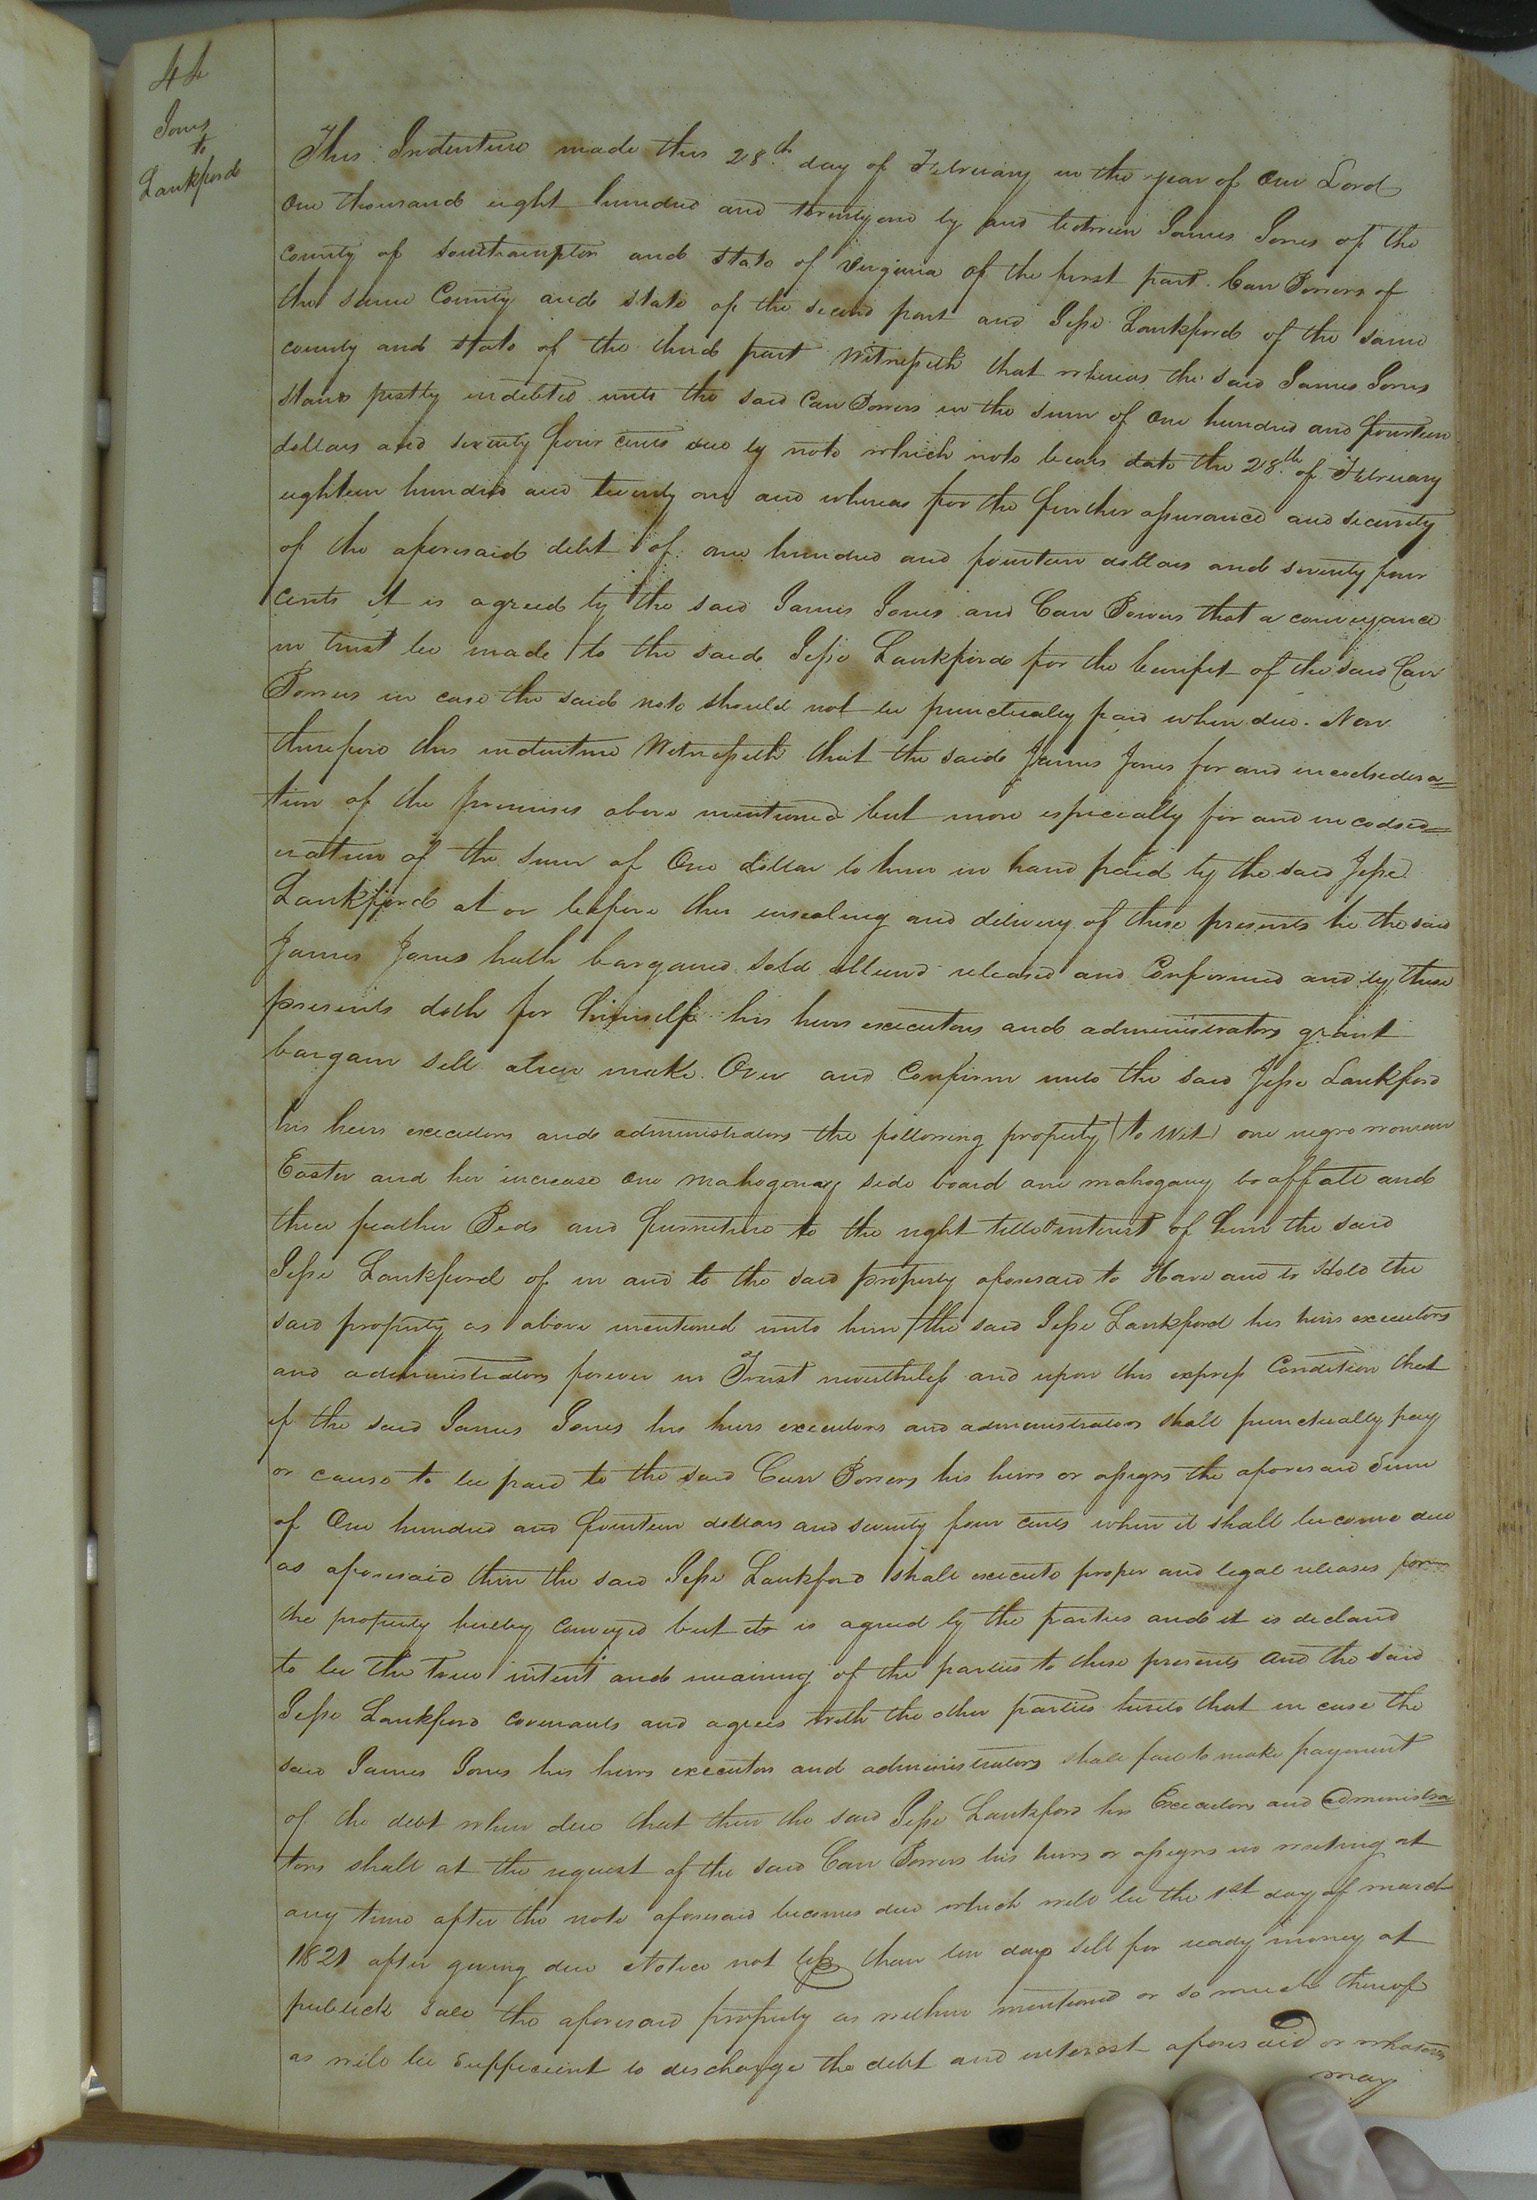 44
Jones
to
Lankford
This Indenture made this 28th day of February in the year of our Lord
one thousand eight hundred and twenty one by and between James Jones of the
county of Southampton and state of Virginia of the first part. Carr Bowers of
the same County and state of the second part and Jesse Lankford of the same
county and state of the third part Witnesseth that whereas the said James Jones
stands justly indebted unto the said Carr Bowers in the sum of one hundred and fourteen
dollars and seventy four cents due by note which note bears date the 28th of February
eighteen hundred and twenty one and whereas for the further assurance and security
of the aforesaid debt of one hundred and fourteen dollars and seventy four
cents it is agreed by the said James Jones and Carr Bowers that a conveyance
in trust be made to the said Jesse Lankford for the benifit of the said Carr
Bowers in case the said note should not be punctually paid when due. Now
therefore this indenture Witnesseth that the said James Jones for and in codsidera=
tion of the premises above mentioned but more especially for and in codsid=
eration of the sum of One dollar to him in hand paid by the said Jesse
Lankford at or before the ensealing and delivery of these presents he the said
James Jones hath bargained sold aliend released and Confirmed and by these
presents doth for himself his heirs executors and administrators grant
bargain sell alien make Over and Confirm unto the said Jesse Lankford
his heirs executors and administrators the following property (to wit) one negro woman
Easter and her increase one mahogonay side board one mahogany boffatt and
three feather Beds and furniture to the right title & interest of him the said
Jesse Lankford of in and to the said property aforesaid to Have and to Hold the
said property as above mentioned unto him the said Jesse Lankford his heirs executors
and administrators forever in Trust nevertheless and upon this express Condition that
if the said James Jones his heirs executors and administrators shall punctually pay
or cause to be paid to the said Carr Bowers his heirs or assigns the aforesaid Sum
of One hundred and fourteen dollars and seventy four cents when it shall become due
as aforesaid then the said Jesse Lankford shall execute proper and legal releases for
the property hereby conveyed but it is agreed by the parties and it is declared
to be the true intent and meaning of the parties to these presents and the said
Jesse Lankford covenants and agrees with the other parties hereto that in case the
said James Jones his heirs executors and administrators shall fail to make payment
of the debt when due that then the said Jesse Lankford his Executors and Administra=
tors shall at the request of the said Carr Bowers his heirs or assigns in writing at
any time after the note aforesaid becomes due which will be the 1st day of march
1821 after giving due Notice not less than ten days sell for ready money at
publick sale the aforesaid property as within mentioned or so much thereof
as will be Sufficient to discharge the debt and interest aforesaid or whatever
may